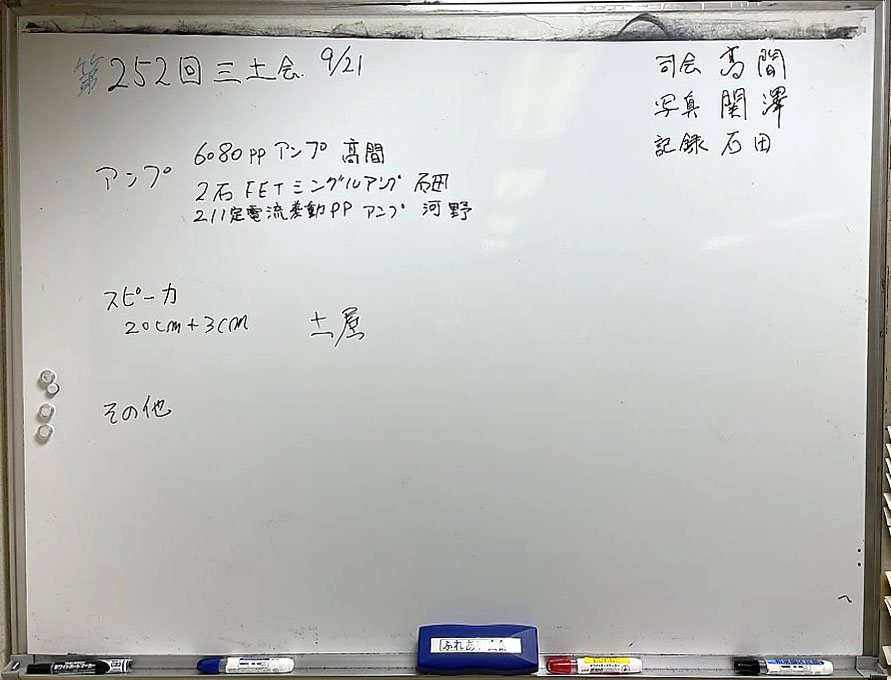 第252回 三土会. 9/21
司会 高間
写真 関澤
記録 石田
アンプ
6080pp アンプ 高間
2石 FET シングルアンプ 石田
211定電流差動PP アンプ 河野
スピーカ
20cm+3cm 土屋
その他
ホワイトボードマーカー